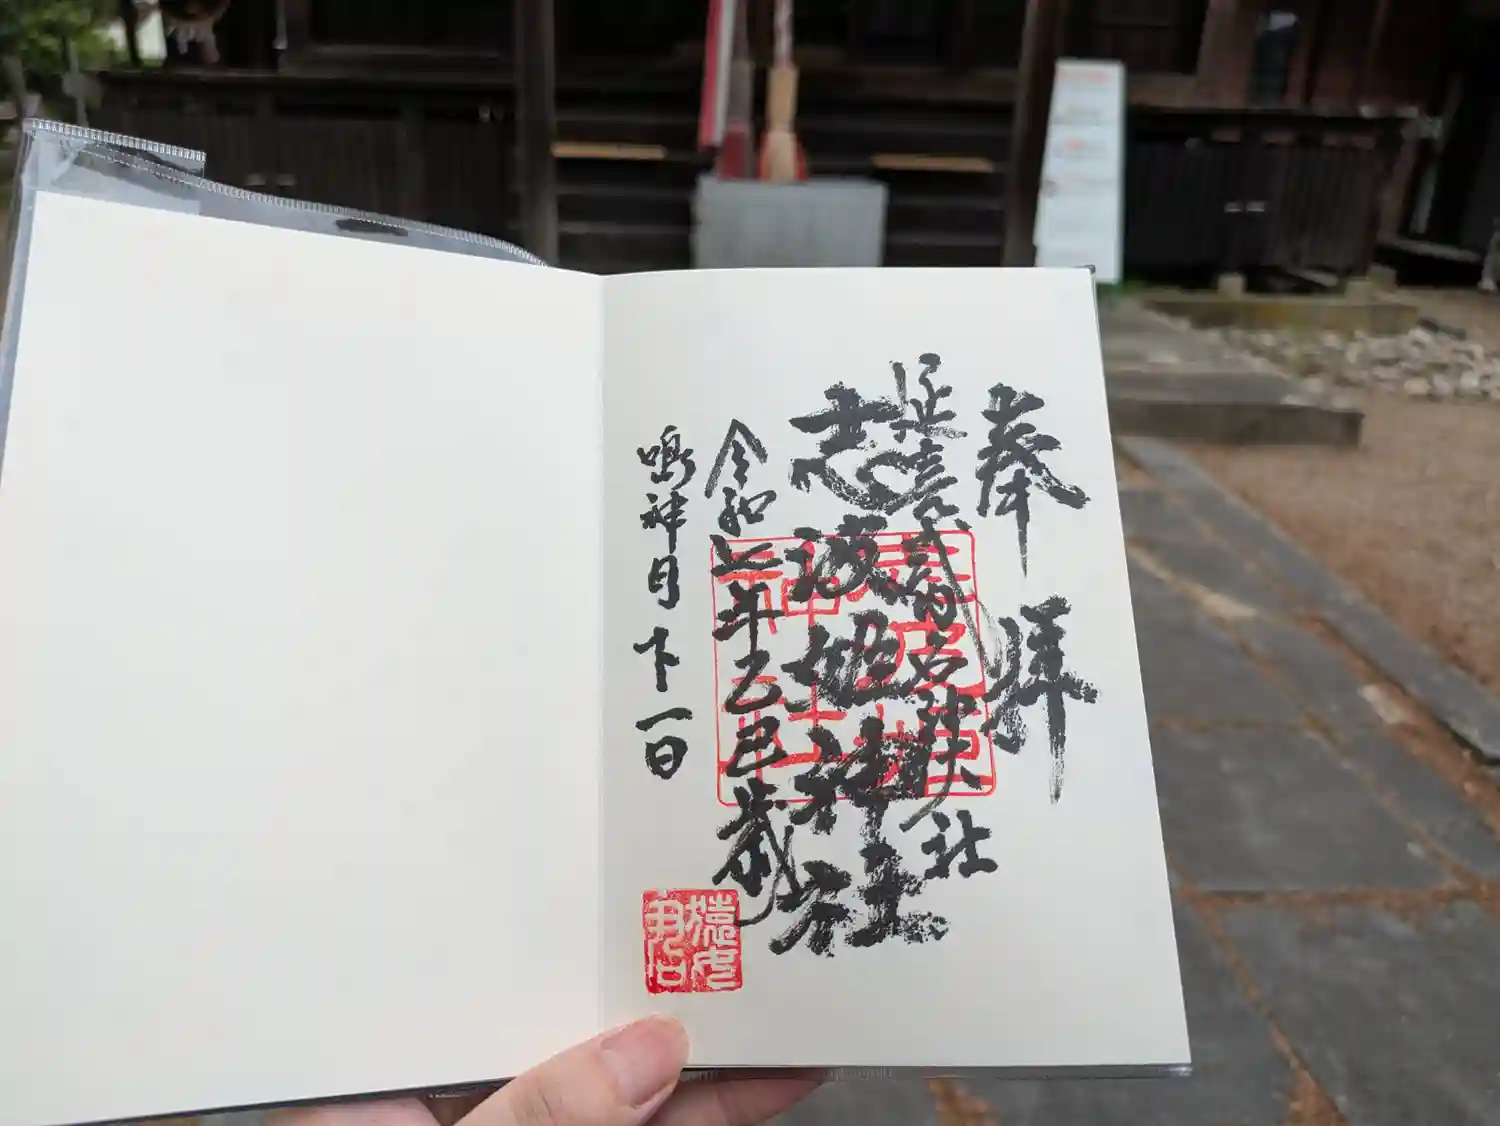 奉拝
延喜式内名神大社
志波姫神社
令和七年乙巳歳
鳴神月下一日